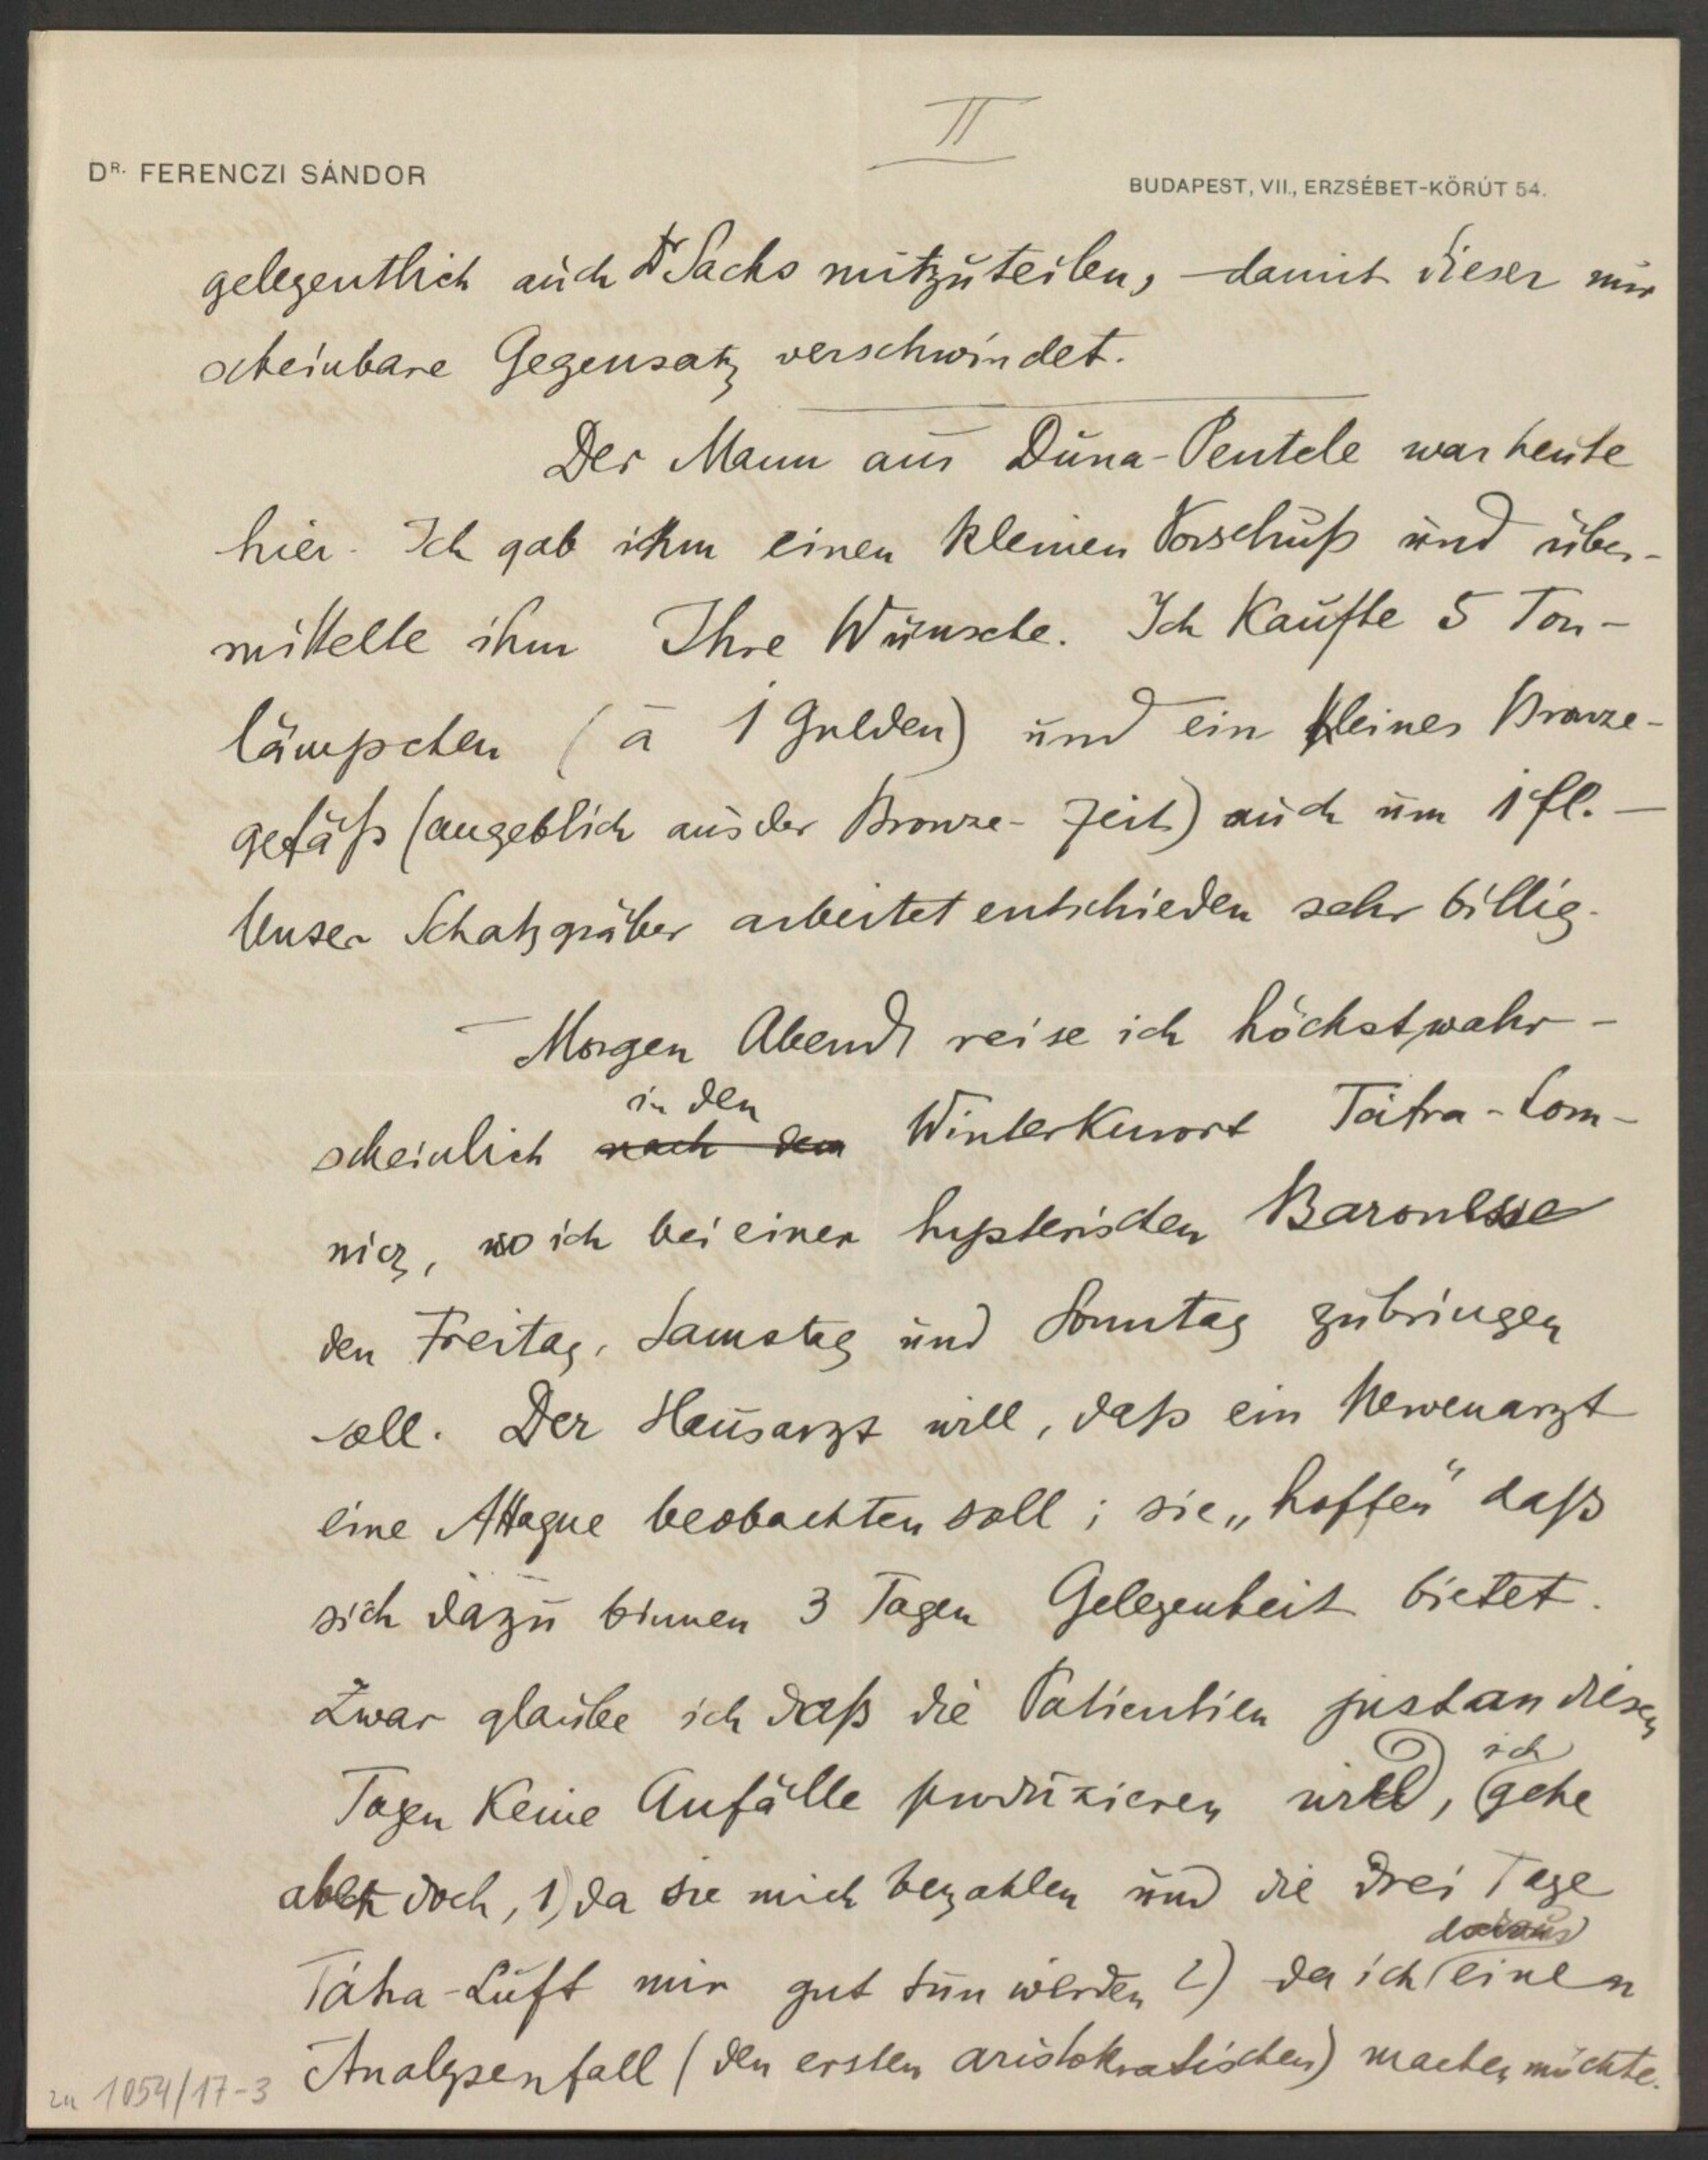 II
DR. FERENCZI SÁNDOR
BUDAPEST, VII., ERZSÉBET-KÖRÚT 54.
gelegentlich auch Dr Sachs mitzuteilen, – damit dieser nur
scheinbare Gegensatz verschwindet.
Der Mann aus Duna-Pentele war heute
hier. Ich gab ihm einen kleinen Vorschuß und über-
mittelte ihm Ihre Wünsche. Ich kaufte 5 Ton-
lämpchen (à 1 Gulden) und ein kleines Bronze-
gefäß (angeblich aus der Bronze-Zeit) auch um 1 fl. –
Unser Schatzgräber arbeitet entschieden sehr billig.
– Morgen Abend reise ich höchstwahr-
in den
scheinlich nach dem Winterkurort Tátra-Lom-
nicz, wo ich bei einer hysterischen Baronesse
den Freitag, Samstag und Sonntag zubringen
soll. Der Hausarzt will, daß ein Nervenarzt
eine Attaque beobachten soll; sie „hoffen“ daß
sich dazu binnen 3 Tagen Gelegenheit bietet.
Zwar glaube ich daß die Patientien just an diesen
ich
Tagen keine Anfälle produzieren wird, gehe
aber doch, 1) da sie mich bezahlen und die drei Tage
daraus
Tátra-Luft mir gut tun werden 2) da ich einen
Analysenfall (den ersten aristokratischen) machen möchte.
zu 1054/17-3